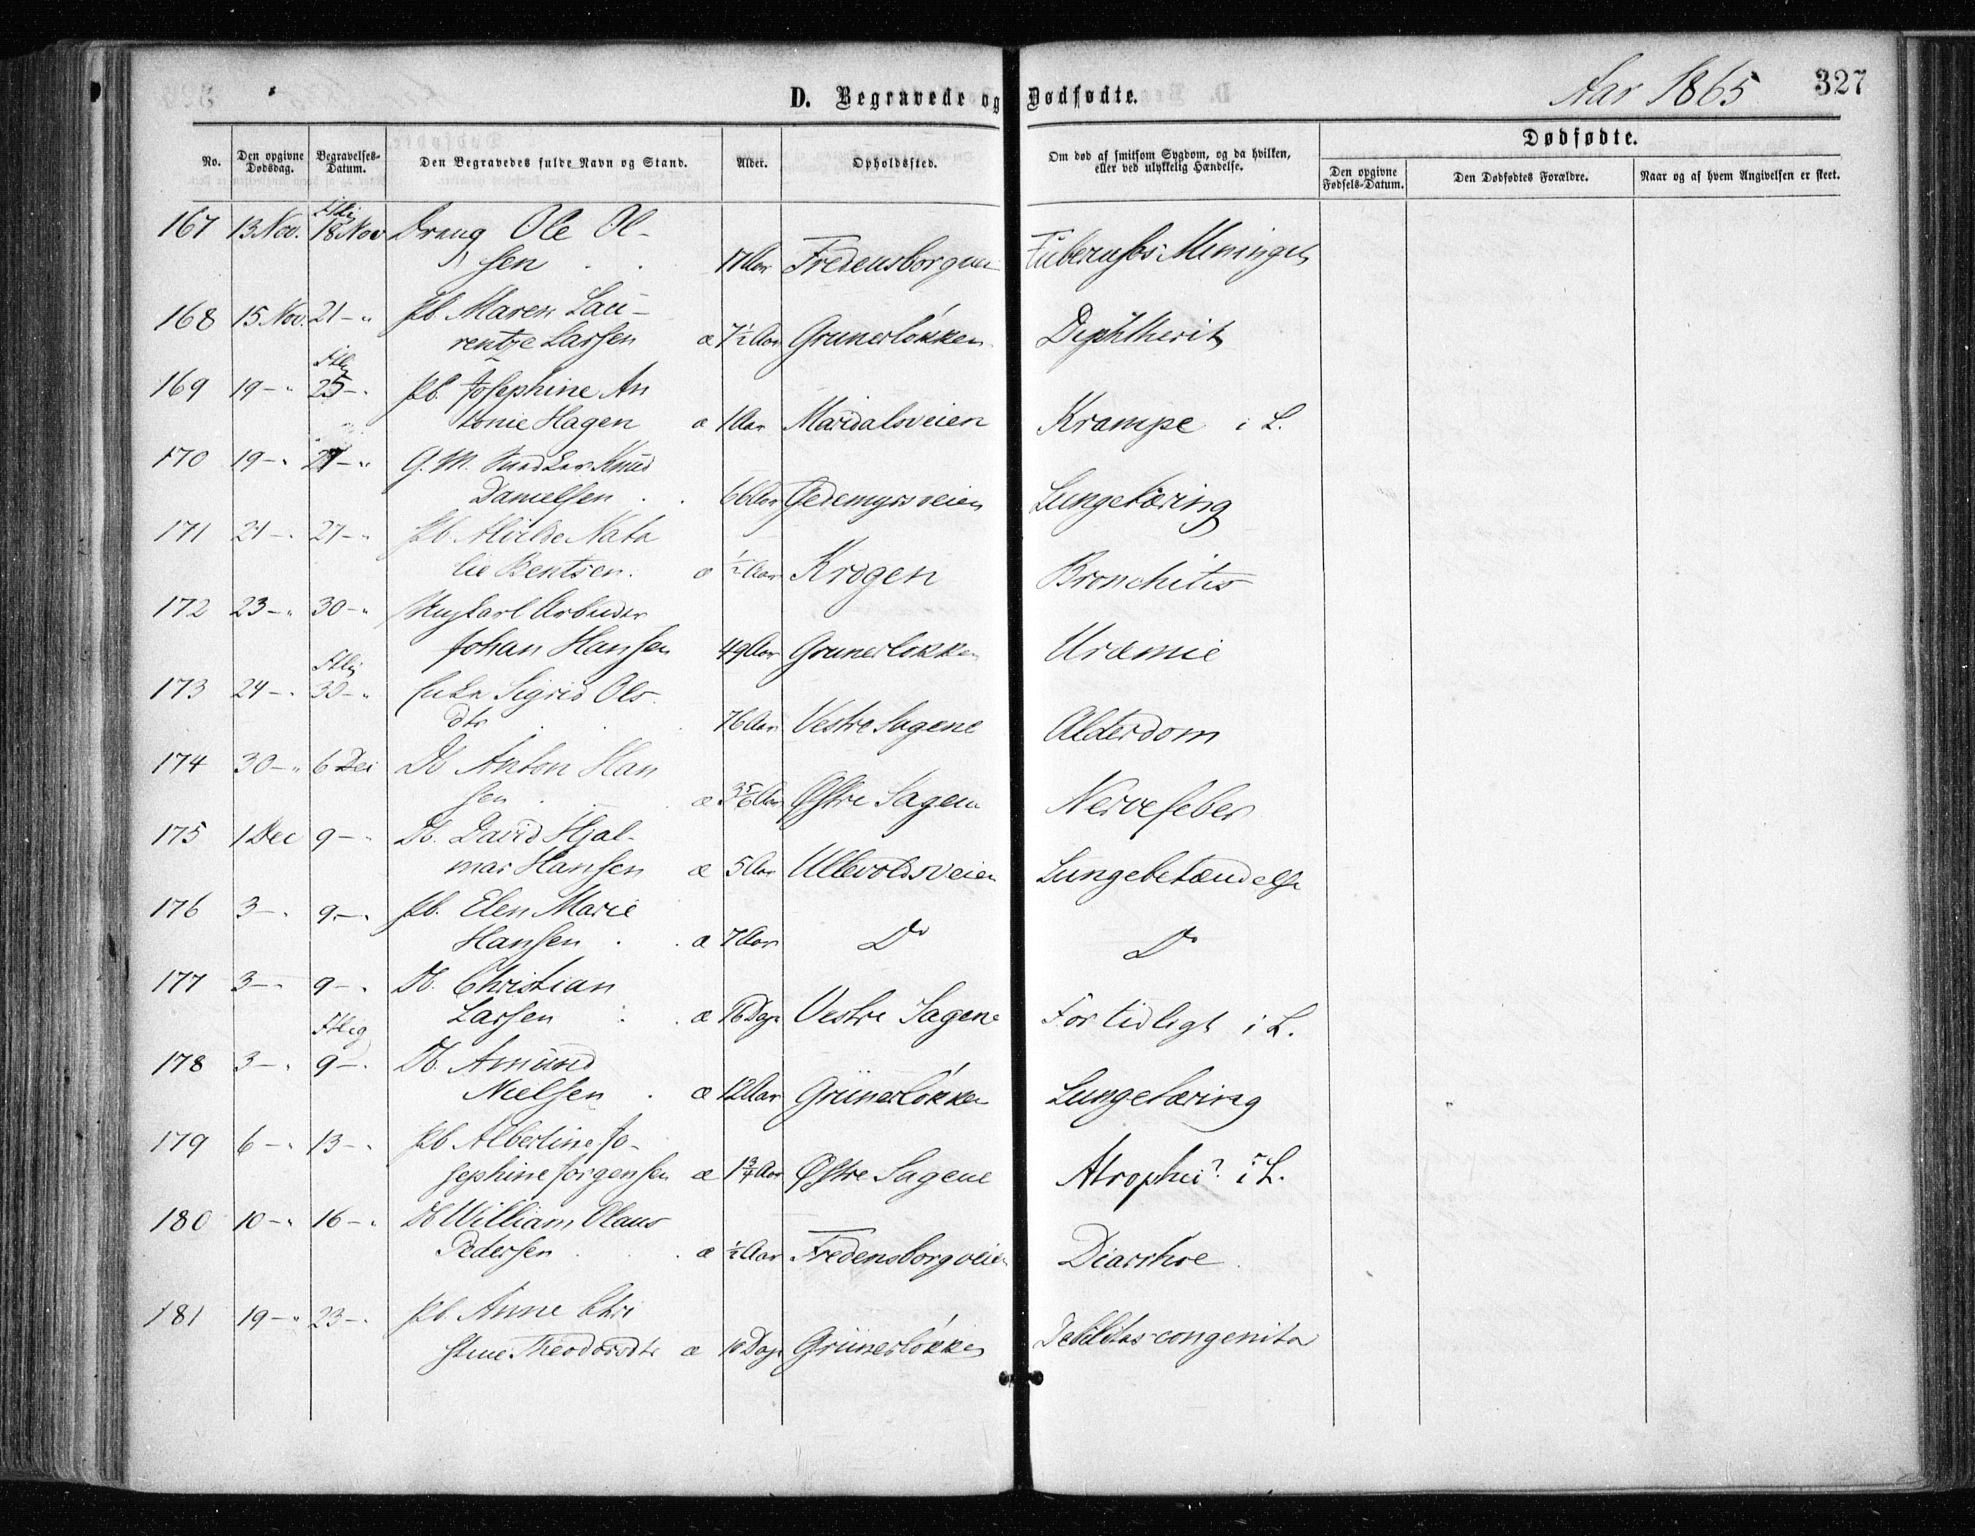 D. Begravede og Dødfødte.
Aar 1865
327
No.
Den opgivne Dødsdag.
Begravelses-Datum.
Den Begravedes fulde Navn og Stand.
Alder.
Opholdssted.
Om død af smitsom Sygdom, og da hvilken,
eller ved ulykkelig Hændelse.
Dødfødte.
Den opgivne Fødsels-Datum.
Den Dødfødtes Forældre.
Naar og af hvem Angivelsen er skeet.
167 13 Nov. 18 Nov Dreng Ole Ol-
sen 17 Aar Fredensborgvei
168 15 Nov. 21 - " Pb. Maren Lau-
rentze Larsen æ 7 1/2 Aar Grunerløkken Diphtherit
169 19 - " 25 - " Pb. Josephine An
tonie Hagen æ 1 Aar Maridalsveien Krampe i L.
170 19 - " 27 - " G. M. Knud
Danielsen 66 Aar Gedemyrsveien Lungetæring
171 21 - " 27 - " Pb. Nata
lie Bentsen. 1/2 Aar Krogen Bronchitis
172 23 - " 30 - " Ungkarl Arbeider
Johan Hansen 49 Aar Grunerløkken Uræmie
173 24 - " 30 - " Enke Sigrid Ols
dtr 76 Aar Vestre Sagene Alderdom
174 30 - " 6 Dec Db Anton Han
sen æ 3 5/6 Aar Østre Sagene Nervefeber
175 1 Dec 9 - " Db. David Hjal-
mar Hansen æ 5 Aar Ullevoldsveien Lungebetændelse
176 3 - " 9 - " Pb. Elen Marie
Hansen æ 7 Aar Do Do
177 3 - " 9 - " Db. Christian
Larsen æ 16 Dage Vestre Sagene For tidligt i L.
178 3 - " 9 - " Db. Amund
Nielsen æ 12 Aar Grünerløkken Lungetæring
179 6 - " 13 - " Pb Albertine Jo-
sephine Jørgensen æ 1 3/4 Aar Østre Sagene Atrophie? i L.
180 10 - " 16 - " Db William Olaus
Pedersen æ 1/2 Aar Fredensborgveien Diarrhoe
181 19 - " 23 - " Pb. Anne Chri
stine Theodorsdtr æ 10 Dage Grünerløkken Debilitas congenita